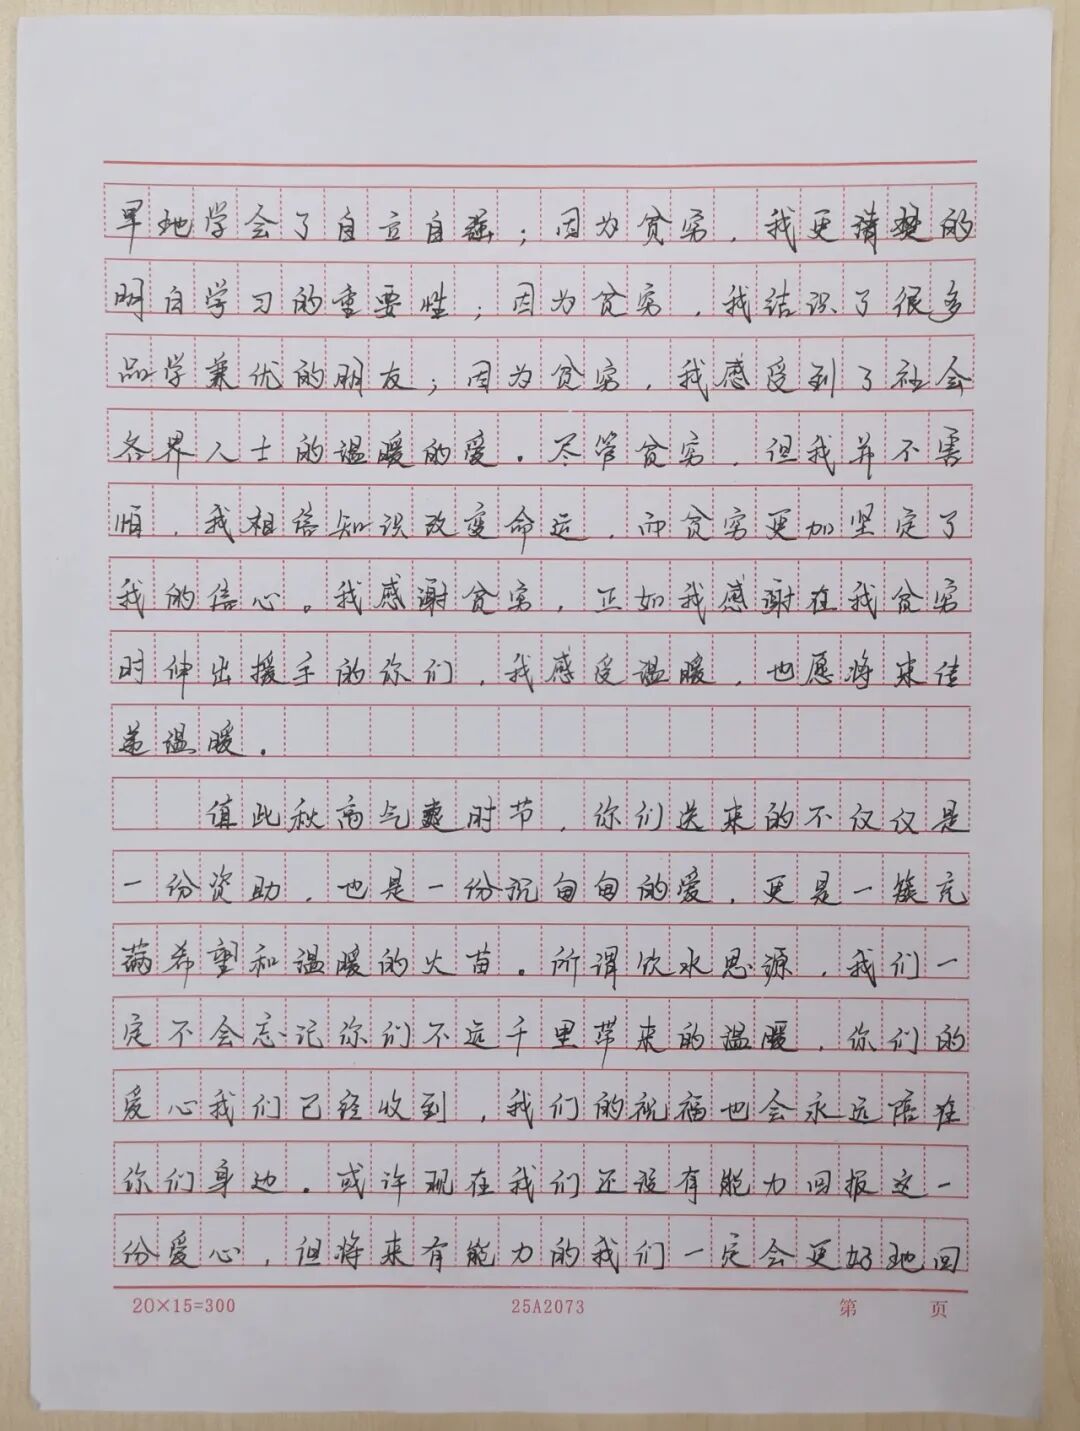 早地学会了自立自强；因为贫穷，我更清楚的
明白学习的重要性；因为贫穷，我结识了很多
品学兼优的朋友；因为贫穷，我感受到了社会
各界人士的温暖的爱。尽管贫穷，但我并不需
惧，我相信知识改变命运，而贫穷更加坚定了
我的信心。我感谢贫穷，正如我感谢在我贫穷
时伸出援手的你们，我感受温暖，也愿将来传
递温暖。
值此秋高气爽时节，你们送来的不仅仅是
一份资助，也是一份沉甸甸的爱，更是一簇充
满希望和温暖的火苗。所谓饮水思源，我们一
定不会忘记你们不远千里带来的温暖，你们的
爱心我们已经收到，我们的祝福也会永远陪在
你们身边。或许现在我们还没有能力回报这一
份爱心，但将来有能力的我们一定会更好地回
20×15=300 25A2073 第 页